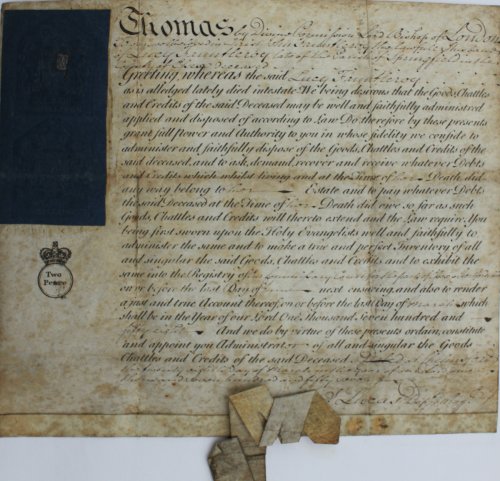 Thomas by Divine Permission Lord Bishop of London
Greeting, whereas the said Lucy
as is alledged lately died intestate We being desirous that the Goods, Chattles
and Credits of the said Deceased may be well and faithfully administred
applied and disposed of according to Law Do therefore by these presents
grant full Power and Authority to you in whose fidelity we confide to
administer and faithfully dispose of the Goods, Chattles and Credits of the
said deceased, and to ask, demand, recover and receive whatever Debts
and Credits which whilst living and at the Time of her Death did
any way belong to her Estate and to pay whatever Debts
the said Deceased at the Time of her Death did owe so far as such
Goods, Chattles and Credits will thereto extend and the Law require, You
being first sworn upon the Holy Evangelists well and faithfully to
administer the same and to make a true and perfect Inventory of all
and singular the said Goods, Chattles and Credits and to exhibit the
same into the Registry of
on or before the last Day of next ensuing, and also to render
a just and true Account thereof, on or before the last Day of March which
shall be in the Year of our Lord One thousand Seven hundred and
And we do by virtue of these presents ordain, constitute
and appoint you Administrator of all and singular the Goods
Chattles and Credits of the said Deceased
the day of March in the year of our Lord one
thousand seven hundred and fifty seven
Two
Pence